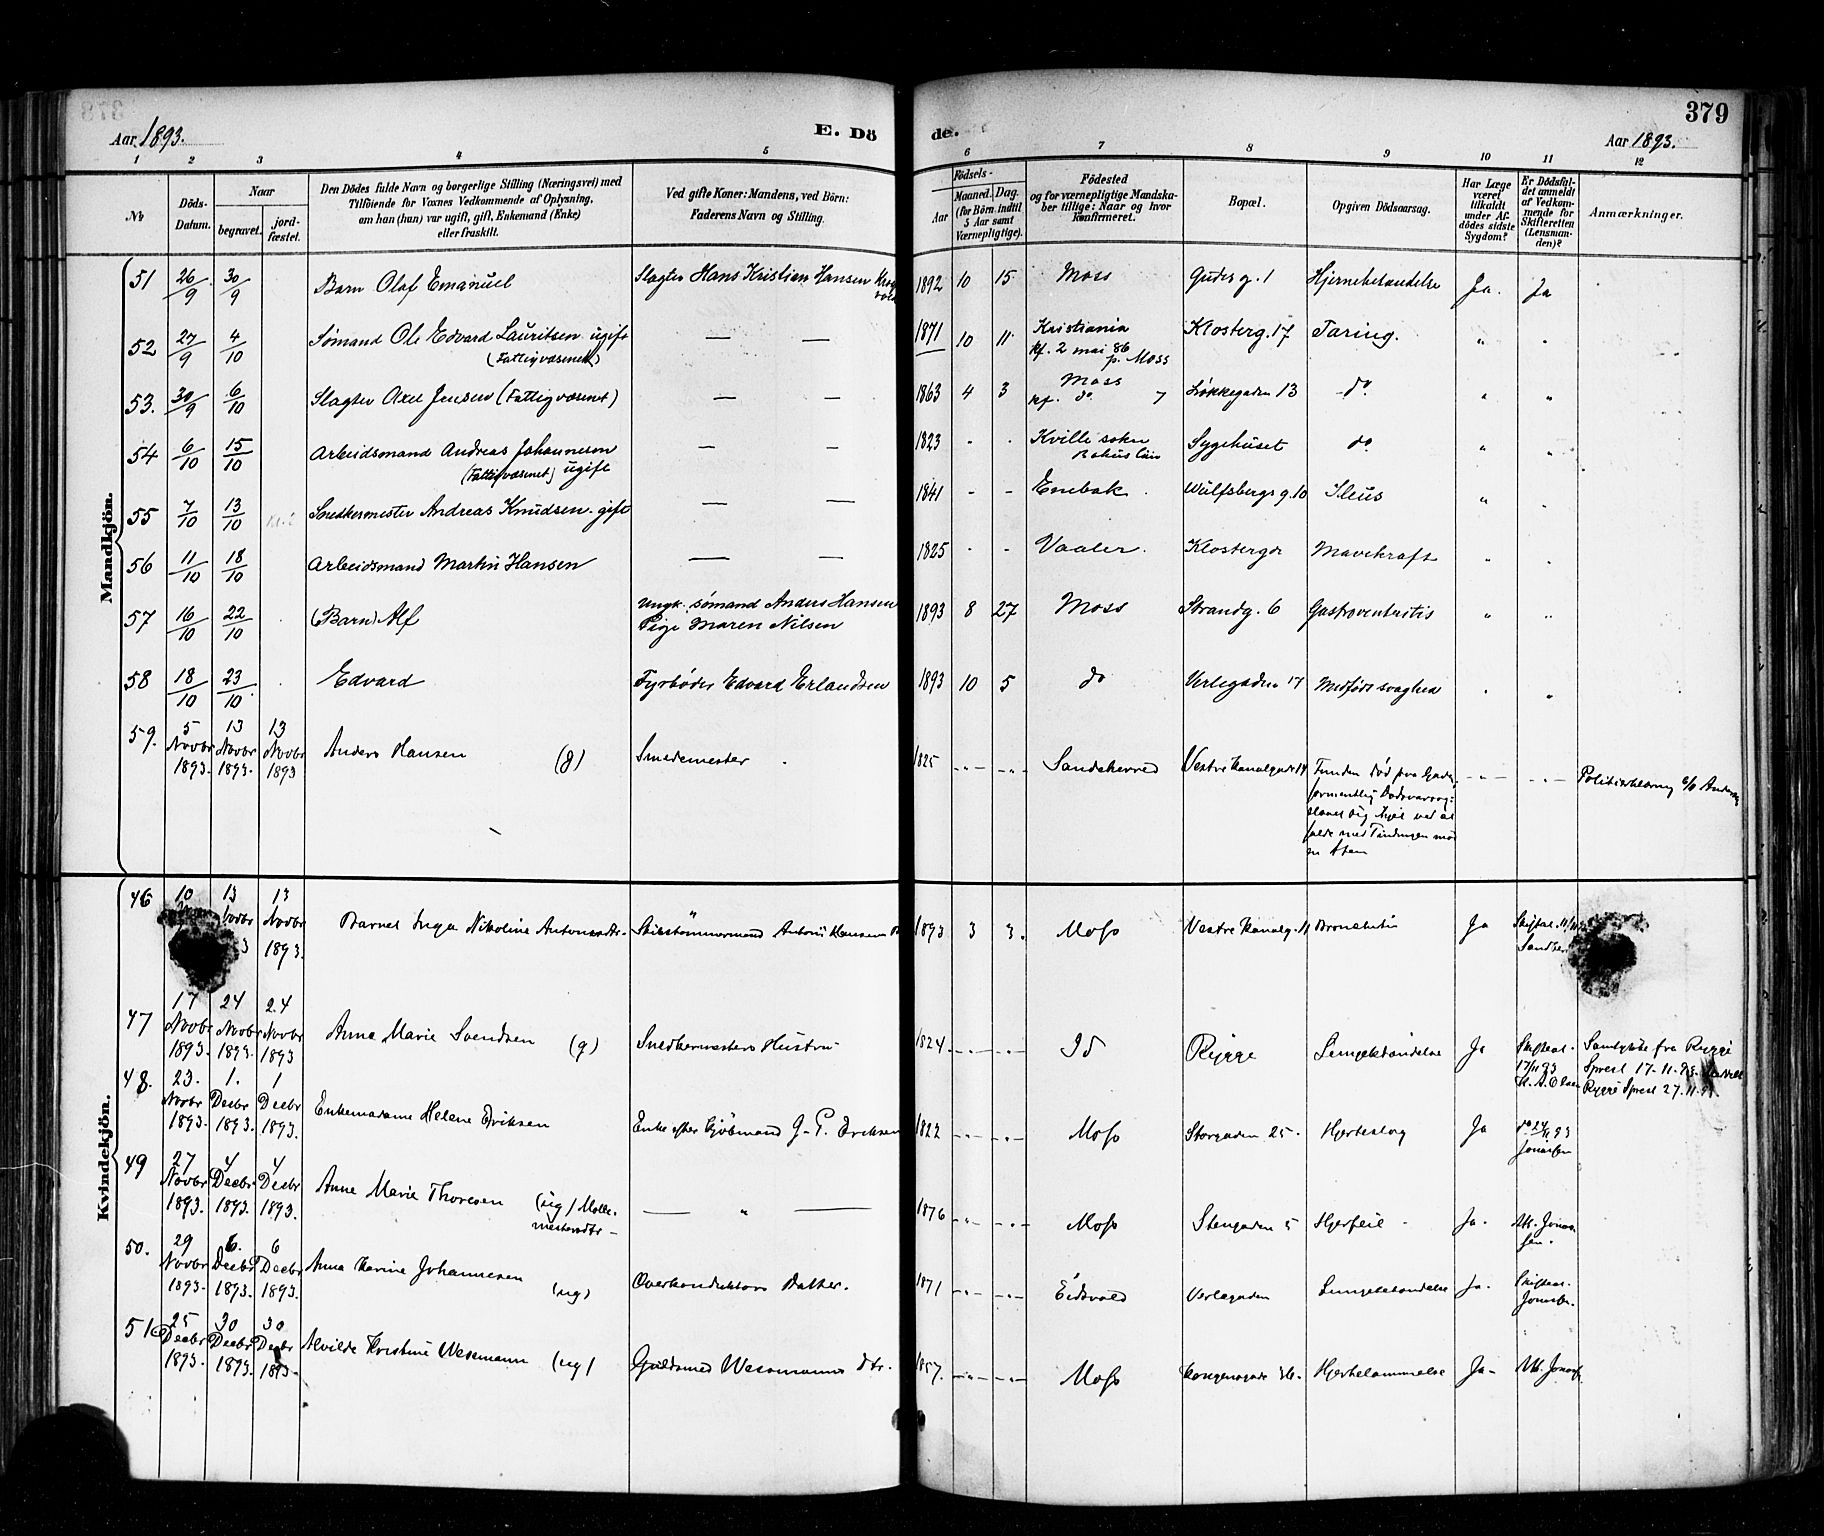 379
Aar 1893.
E. Dö
de.
Aar 1893.
1 2 3 4 5 6 7 8 9 10 11 12
No
Döds-Datum.
Naar
begravet.
jord-fæstet.
Den Dödes fulde Navn og borgerlige Stilling (Næringsvei) med
Tilföiende for Voxnes Vedkommende af Oplysning,
om han (hun) var ugift, gift, Enkemand (Enke)
eller fraskilt.
Ved gifte Koner: Mandens, ved Börn:
Faderens Navn og Stilling.
Födsels-
Aar
Maaned. Dag.
(for Börn indtil
5 Aar samt
Værnepligtige).
Födested
og for værnepligtige Mandska-
ber tillige: Naar og hvor
konfirmeret.
Bopæl.
Opgiven Dödsaarsag.
Har Læge
været
tilkaldt
under Af-
dödes sidste
Sygdom?
Er Dödsfal-
det anmeldt
af Vedkom-
mende for
Skifteretten
(Lensman-
den)?
Anmærkninger.
Mandkjön.
51 26/9 30/9 Barn Olaf Emanuel Slagter Hans Kristian Hansen 1892 10 15 Moss Gudes g. 1 Hjernebetændelse Ja. Ja
52 27/9 4/10 Sömand Ole Edvard Lauritsen ugift — — 1871 10 11 Kristiania Klosterg. 17 Tæring. " "
(Fattigvæsenet) kf. 2 mai 86
p. Moss
53. 30/9 6/10 Slagter Axel Jensen (Fattigvæsenet) — — 1863 4 3 Moss Løkkegaden 13 do. " "
kf. do.
54 6/10 15/10 Arbeidsmand Andreas Johannesen — — 1823 - - Kville sokn Sygehuset do. " "
(Fattigvæsenet) ugift Bohus län
55 7/10 13/10 Snedkermester Andreas Knudsen. gift — — 1841 - - Enebak. Wulfsbergs g. 10 Ileus " "
56 11/10 18/10 Arbeidsmand Martin Hansen — — 1825 - - Vaaler. Klostergr Mavekræft " "
57 16/10 22/10 (Barn) Alf Ungk. sömand Anders Hansen 1893 8 27 Moss Strandg. 6 Gastroenteritis " "
Pige Maren Nilsen
58 18/10 23/10 Edvard Fyrböder Edvard Erlandsen 1893 10 5 do Verlegaden 17 Medfödt svaghed " "
59. 5 Novbr 1893. 13 Novbr 1893. 13 Novbr 1893 Anders Hansen (g) Smedemester 1825 -"- -"- Sandeherred Vestre Kanalgade 14 Funden död paa Gaden, -"- -"- Politierklæring
formentlig Dödsaarsag:
slaaet sig ihjel ved at
falde med Tindingen mod
en Sten
Kvindekjön.
46 10 13 Novbr 13 Novbr 1893. Barnet Inga Nikoline Antonsdtr. Skibstømmermand Anton Hansens 1893 3 3. Moss Vestre Kanalg. 11 Bronchitis Ja Skifteat. 11/11
47 17 Novbr 1893. 24 Novbr 1893. 24 Novbr 1893 Anna Marie Svendsen (g) Snedkermesters Hustru 1824. -"- -"- Id Rygge Lungebetændelse Ja Skifteat. 17/11 93 Samtykke fra Rygge
Sprest 17-11-93.
Rygge Sprest 27.11.93.
48. 23. Novbr 1893. 1. Decbr 1893. 1 Decbr 1893. Enkemadame Helene Eriksen Enke efter Kjöbmand J. P. Eriksen 1822 -"- -"- Moss Storgaden 25. Hjerteslag Ja do 27/11 93
Jonassen
49 27 Novbr 1893. 4 Decbr 1893. 4 Decbr 1893. Anne Marie Thoresen (ug) Møllemestersdtr — " — 1876 -"- -"- Moss Stengaden 5 Hjerfeil Ja. Att. Jonassen.
50. 29 Novbr 1893. 6. Decbr 1893. 6 Decbr 1893. Anna Karine Johannesen (ug) Overkonduktörs Datter. 1871 -"- -"- Eidsvold Verlegaden Lungebetændelse Ja. Skifteat.
51. 25 Decbr 1893. 30 Decbr 1893. 30 Decbr 1893. Alvilde Kristine Wesemann (ug) Guldsmed Wesemanns dtr. 1857. -"- -"- Moss Kongensgade Hjertelammelse Ja- Att. Jonassen